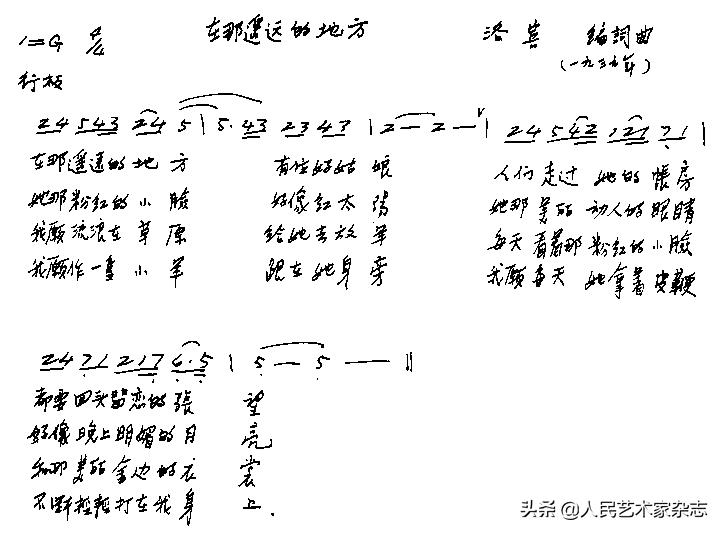 在那遥远的地方
1=G 4/4
洛宾 编詞曲
(一九三九年)
行板
24 543 24 5 | 5. 43 23 43 | 2 — 2 — V | 24 542 121 71 |
在那遥远的地方 有位好姑娘 人们走过她的帳房
她那粉红的小臉 好像红太陽 她那美的动人的眼睛
我願流浪在草原 给她去放羊 每天看着那粉红的小臉
我願作一隻小羊 跟在她身旁 我願每天她拿着皮鞭
24 71 217 6.5 | 5 — 5 — — ||
都要回头留恋的張望
好像晚上明媚的月亮
和那美的金边的衣裳
不断輕輕打在我身上.
头条 @人民艺术家杂志